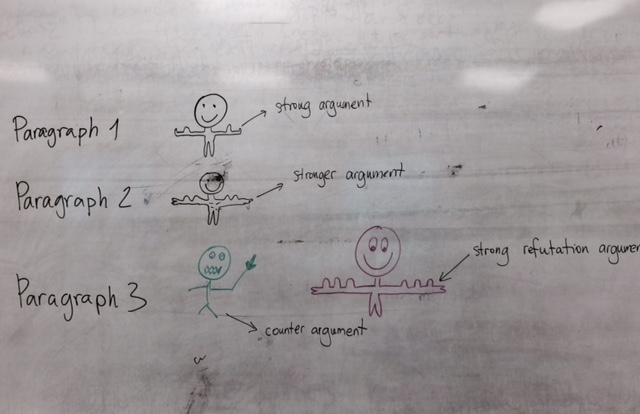 Paragraph 1
strong argument
Paragraph 2
stronger argument
Paragraph 3
strong refutation argumen
counter argument